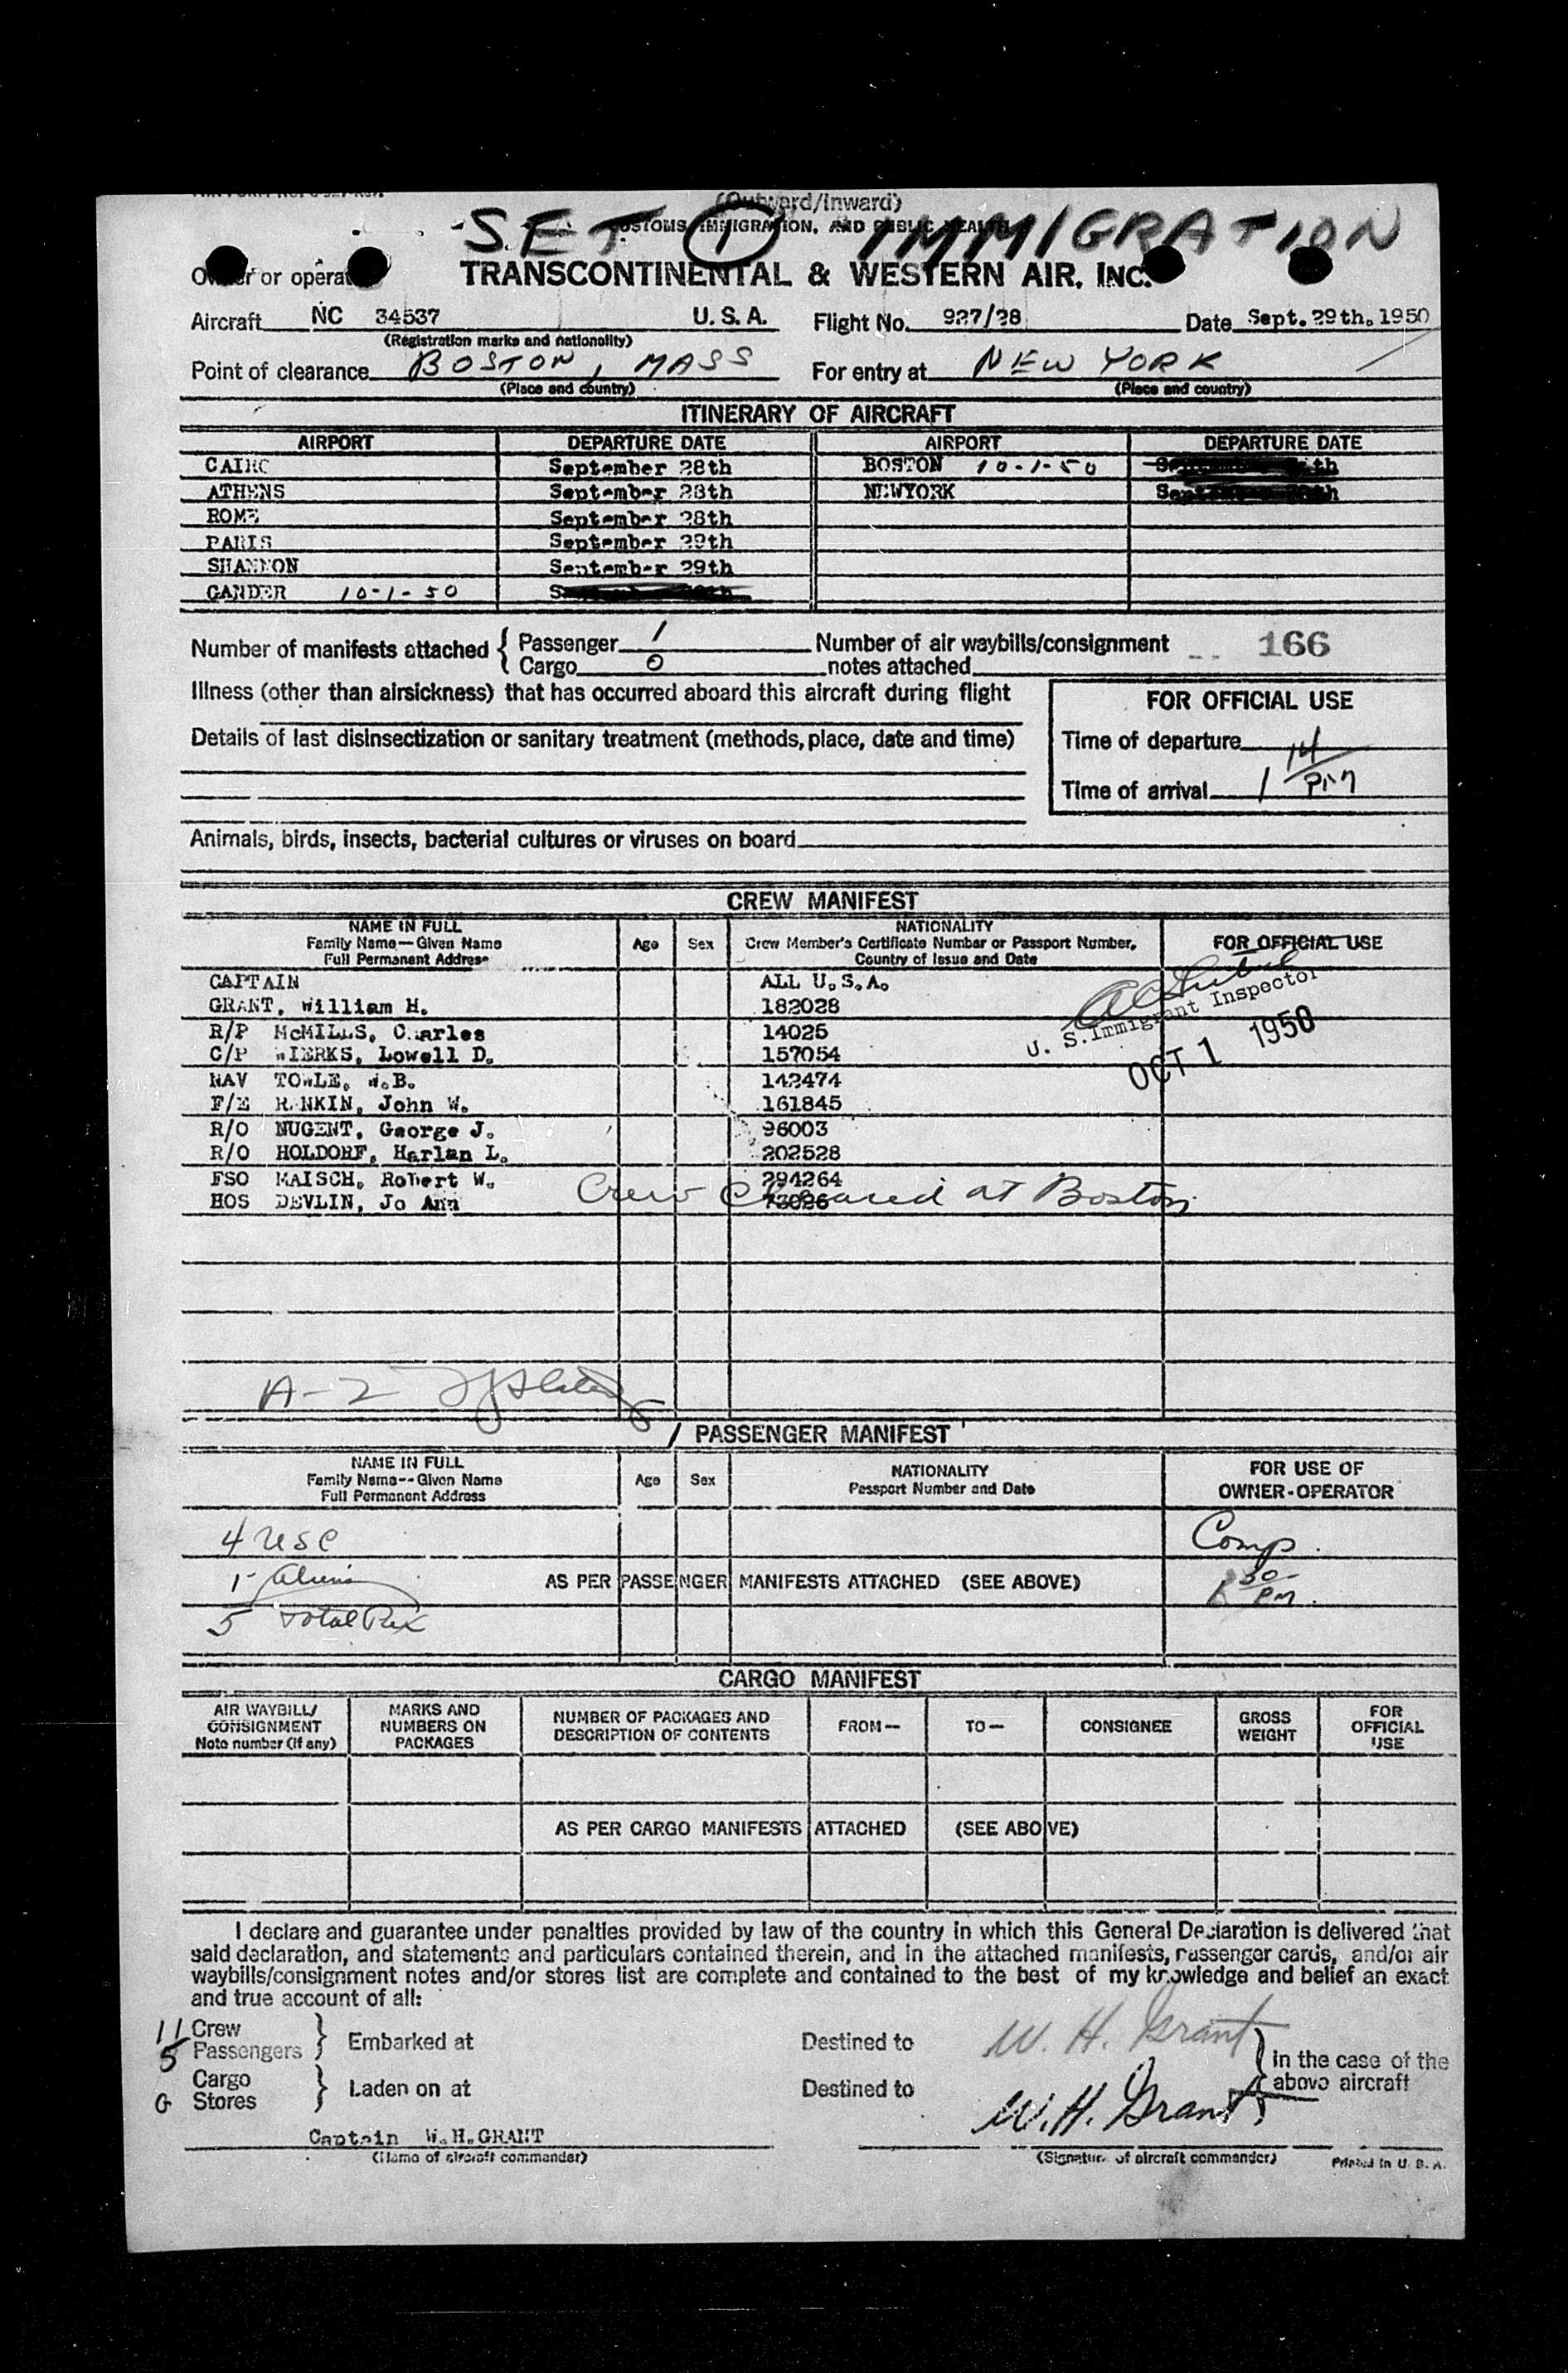 (Outward/Inward)
CUSTOMS, IMMIGRATION, AND PUBLIC HEALTH
SET 1 IMMIGRATION
Owner or operator TRANSCONTINENTAL & WESTERN AIR, INC.
Aircraft NC 34537 U. S. A. Flight No. 927/28 Date Sept. 29th. 1950
(Registration marks and nationality)
Point of clearance BOSTON, MASS For entry at NEW YORK
(Place and country) (Place and country)
ITINERARY OF AIRCRAFT
AIRPORT DEPARTURE DATE AIRPORT DEPARTURE DATE
CAIRO September 28th BOSTON 10-1-50
ATHENS September 28th NEWYORK
ROME September 28th
PARIS September 29th
SHANNON September 29th
GANDER 10-1-50
Number of manifests attached { Passenger 1 Number of air waybills/consignment 166
Cargo 0 notes attached
Illness (other than airsickness) that has occurred aboard this aircraft during flight
FOR OFFICIAL USE
Details of last disinsectization or sanitary treatment (methods, place, date and time)
Time of departure
Time of arrival 1 14/PM
Animals, birds, insects, bacterial cultures or viruses on board
CREW MANIFEST
NAME IN FULL Age Sex NATIONALITY FOR OFFICIAL USE
Family Name—Given Name Crew Member's Certificate Number or Passport Number,
Full Permanent Address Country of Issue and Date
CAPTAIN ALL U.S.A.
GRANT, William H. 182028
U. S. Immigrant Inspector
R/P McMILLS, Charles 14025
OCT 1 1950
C/P WIERKS, Lowell D. 157054
NAV TOWLE, W.B. 142474
F/E RANKIN, John W. 161845
R/O NUGENT, George J. 96003
R/O HOLDORF, Harlan L. 202528
FSO MAISCH, Robert W. 294264
HOS DEVLIN, Jo Ann 73026
Crew cleared at Boston
A-2
1 PASSENGER MANIFEST
NAME IN FULL Age Sex NATIONALITY FOR USE OF
Family Name--Given Name Passport Number and Date OWNER-OPERATOR
Full Permanent Address
4 USC Comp.
1- Aliens AS PER PASSENGER MANIFESTS ATTACHED (SEE ABOVE) 30 PM.
5 Total Pax
CARGO MANIFEST
AIR WAYBILL/ MARKS AND NUMBER OF PACKAGES AND FROM— TO— CONSIGNEE GROSS FOR
CONSIGNMENT NUMBERS ON DESCRIPTION OF CONTENTS WEIGHT OFFICIAL
Note number (if any) PACKAGES USE
AS PER CARGO MANIFESTS ATTACHED (SEE ABOVE)
I declare and guarantee under penalties provided by law of the country in which this General Declaration is delivered that
said declaration, and statements and particulars contained therein, and in the attached manifests, passenger cards, and/or air
waybills/consignment notes and/or stores list are complete and contained to the best of my knowledge and belief an exact
and true account of all:
11 Crew
5 Passengers } Embarked at Destined to W. H. Grant } in the case of the
Cargo above aircraft
0 Stores } Laden on at Destined to W.H. Grant
Captain W.H.GRANT
(Name of aircraft commander) (Signature of aircraft commander) Printed in U. S. A.